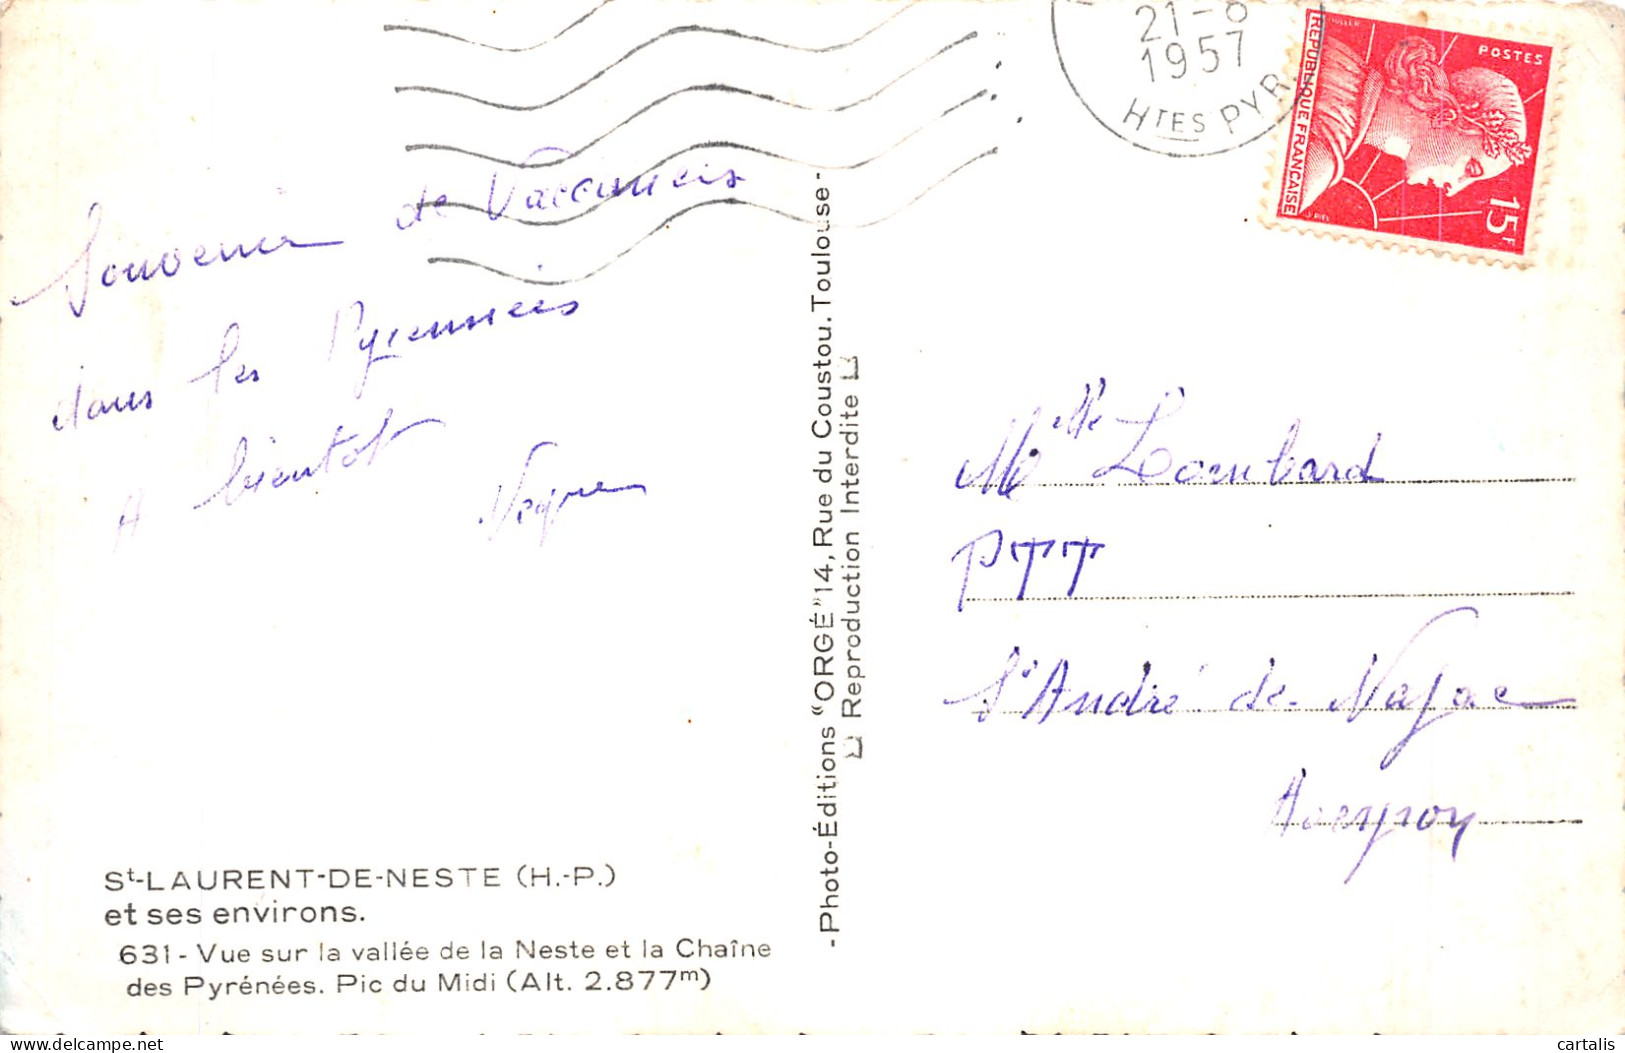 21-8
1957
HTES PYR.
POSTES
REPUBLIQUE FRANÇAISE
15F
Souvenir de Vacances
dans les Pyrennées
A bientot
Melle Lombard
PTT
St André de Najac
Aveyron
-Photo-Éditions "ORGÉ" 14, Rue du Coustou. Toulouse-
Reproduction Interdite
St-LAURENT-DE-NESTE (H.-P.)
et ses environs.
631 - Vue sur la vallée de la Neste et la Chaîne
des Pyrénées. Pic du Midi (Alt. 2.877m)
cartalis